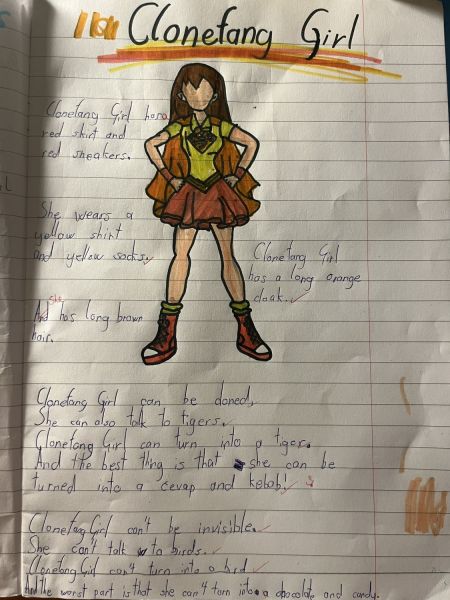 Clonefang Girl
Clonefang Girl has a
red skirt and
red sneakers.
She wears a
yellow shirt
and yellow socks.
Clonefang Girl
has a long orange
cloak.
she
And has long brown
hair.
Clonefang Girl can be cloned,
She can also talk to tigers.
Clonefang Girl can turn into a tiger.
And the best thing is that she can be
turned into a cevap and kebob!
Clonefang Girl can't be invisible.
She can't talk to birds.
Clonefang Girl can't turn into a bird
And the worst part is that she can't turn into a chocolate and candy.